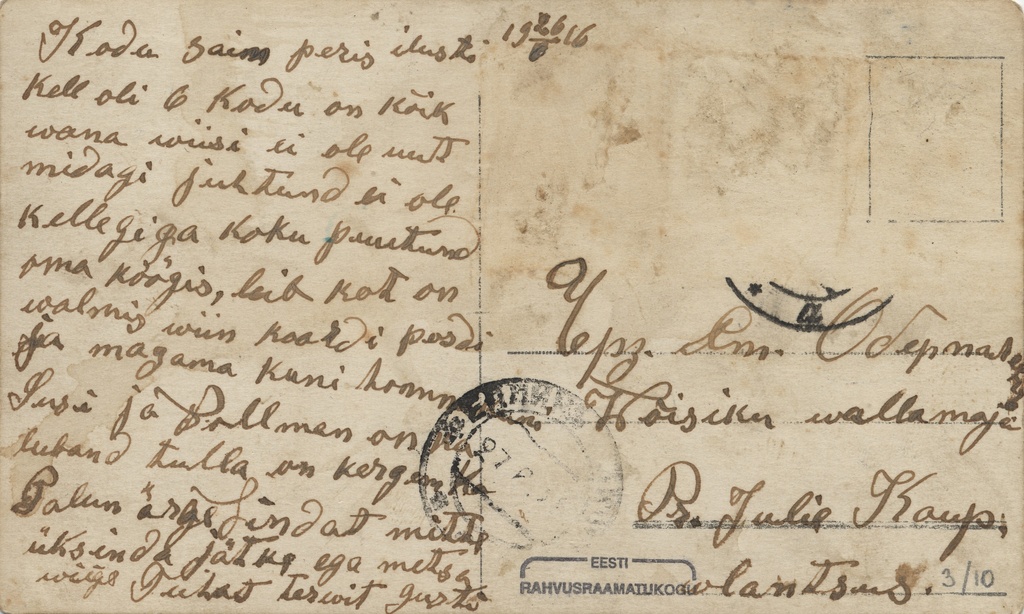 Kodu sain peris ilusti
kell oli 6 Kodu on kõik
wana wiisi ei ole uut
midagi juhtund ei ole
kellegiga koku puutund
oma köögis, leib kot on
walmis wiin kaardi posdi
ja magama kuni homm
Susi ja Pollman on ka
luband tulla on kergem
Palun ärge Lindat mitte
üksinda jätke ega metsa
wiige Tuhat terwit Gusti
19 26/6 16
a
Чрз. Ст. Оберпален
Wõisiku wallamaja
Pr. Julie Kaup.
wlantsus.
EESTI
RAHVUSRAAMATUKOGU
3/10